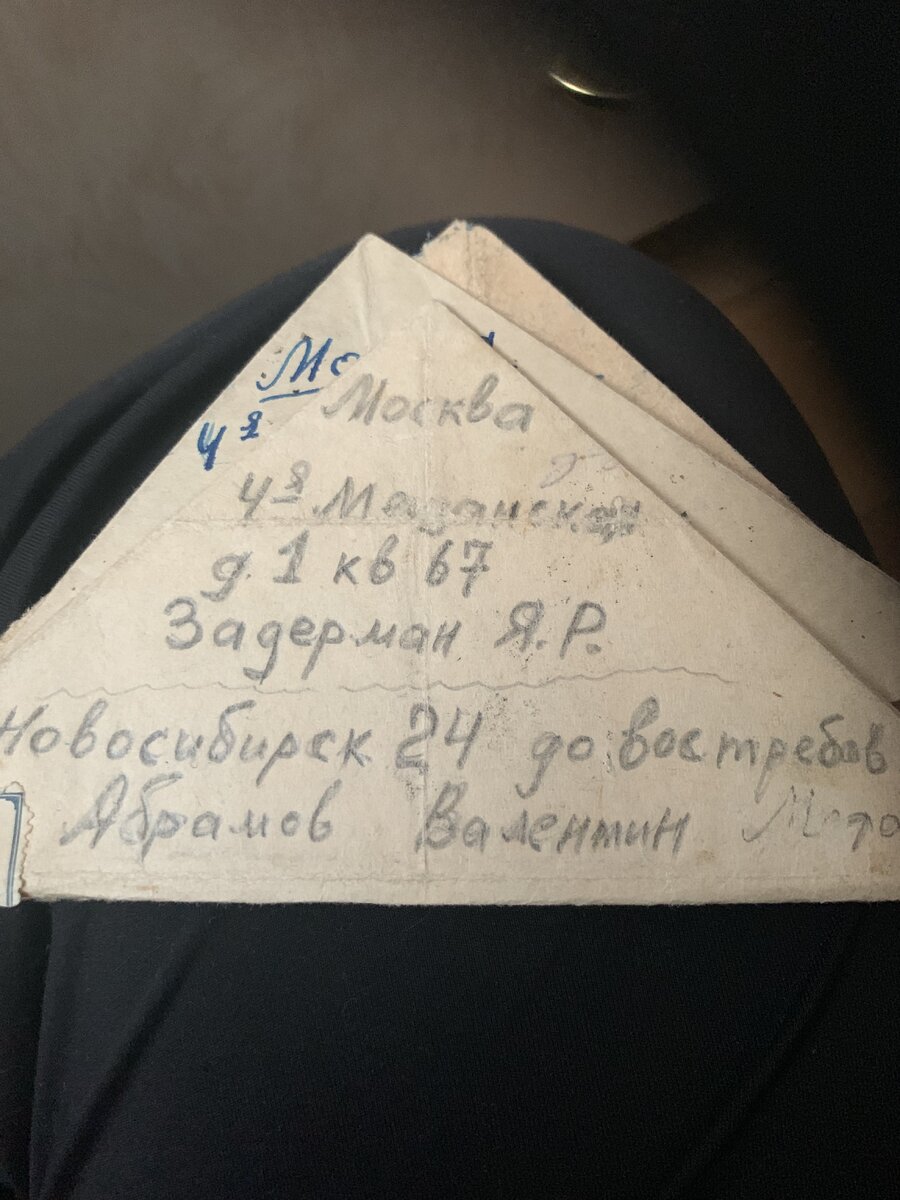 Мо
4я
Москва
4я Мещанская
д 1 кв 67
Задерман Я.Р.
Новосибирск 24 до востребов
Абрамов Валентин